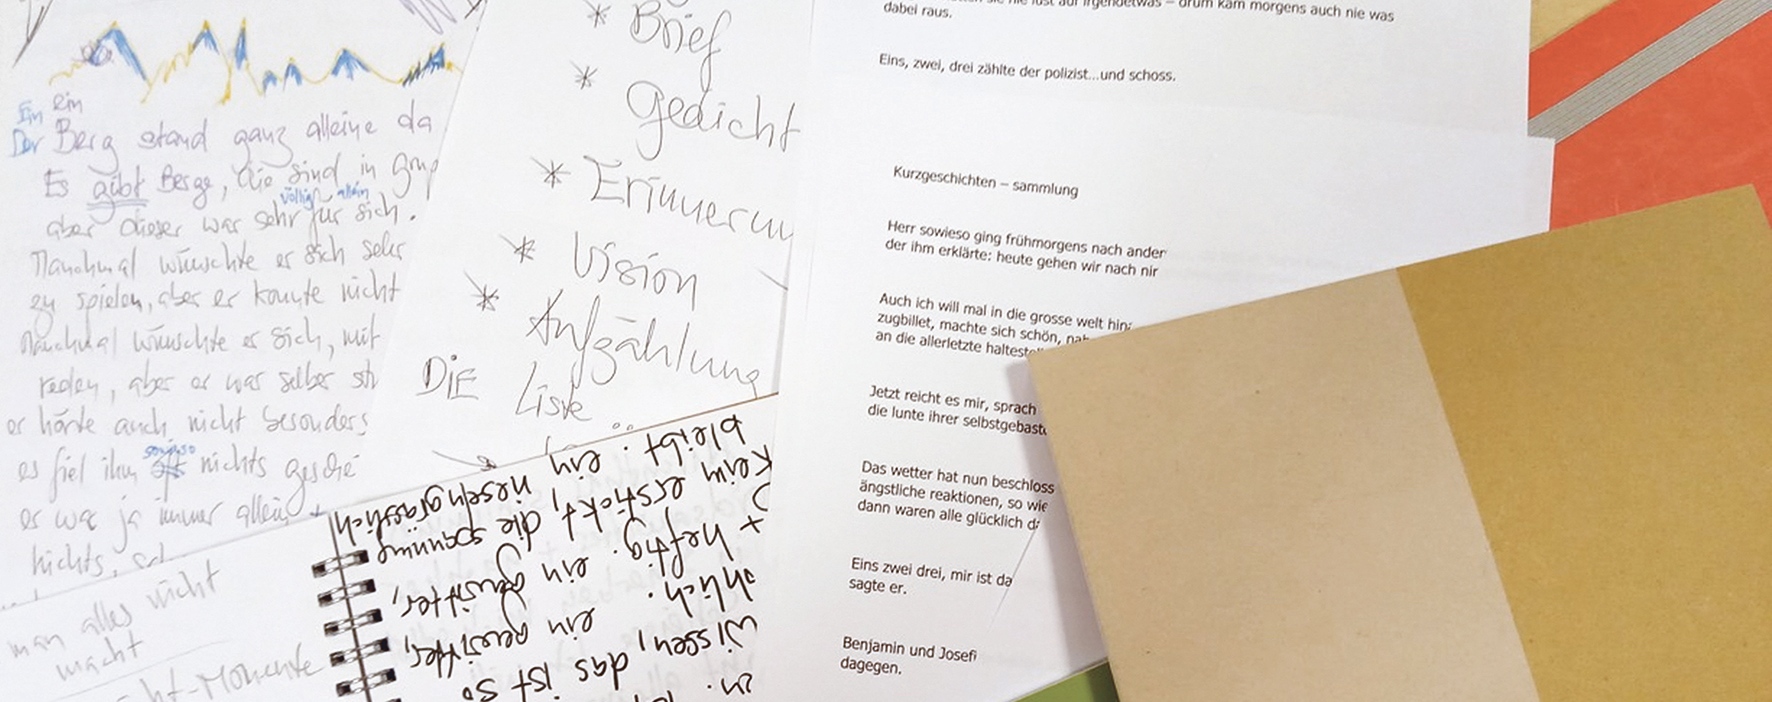 Ein ein
Der Berg stand ganz alleine da
Es gibt Berge, die sind in
völlig allein
aber dieser war sehr für sich.
Manchmal wünschte er sich sehr
zu spielen, aber er konnte nicht
Manchmal wünschte er sich, mit
reden, aber er war selber
er hörte auch nicht besonders
sowieso
es fiel ihm nichts
es war ja immer allein
nichts,
man alles nicht
macht
* Brief
* Gedicht
* Erinnerun
* Vision
* Aufzählung
DIE Liste
in.
wissen, das ist so
ein gewitter,
ein gewitter,
+ heftig.
erstickt, die spannung
Kein nieseln grässlich
bleibt. ein
dabei raus.
Eins, zwei, drei zählte der polizist...und schoss.
Kurzgeschichten – sammlung
Herr sowieso ging frühmorgens nach ander
der ihm erklärte: heute gehen wir nach nir
Auch ich will mal in die grosse welt hin
zugbillet, machte sich schön,
an die allerletzte haltest
Jetzt reicht es mir, sprach
die lunte ihrer selbstgebast
Das wetter hat nun beschloss
ängstliche reaktionen, so wie
dann waren alle glücklich d
Eins zwei drei, mir ist da
sagte er.
Benjamin und Josefi
dagegen.